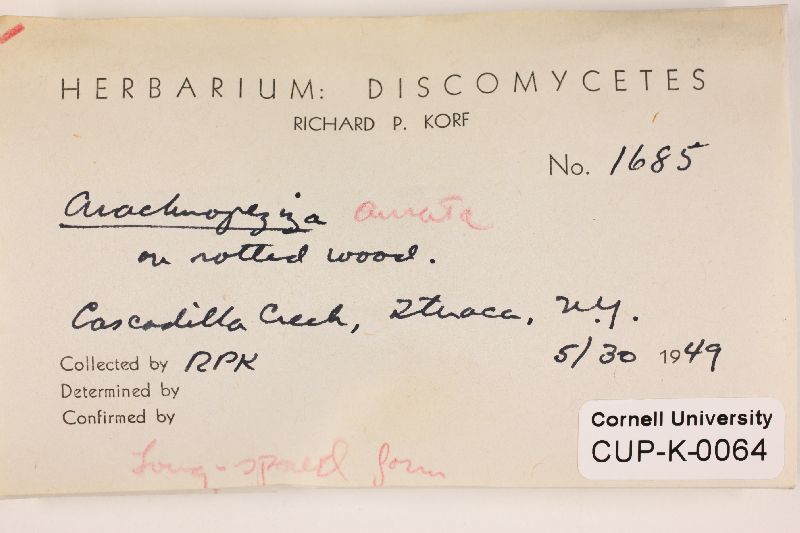 HERBARIUM: DISCOMYCETES
RICHARD P. KORF
No. 1685
Arachnopeziza aurata
on rotted wood.
Cascadilla Creek, Ithaca, N.Y.
Collected by RPK 5/30 1949
Determined by
Confirmed by
Long-spored form
Cornell University
CUP-K-0064